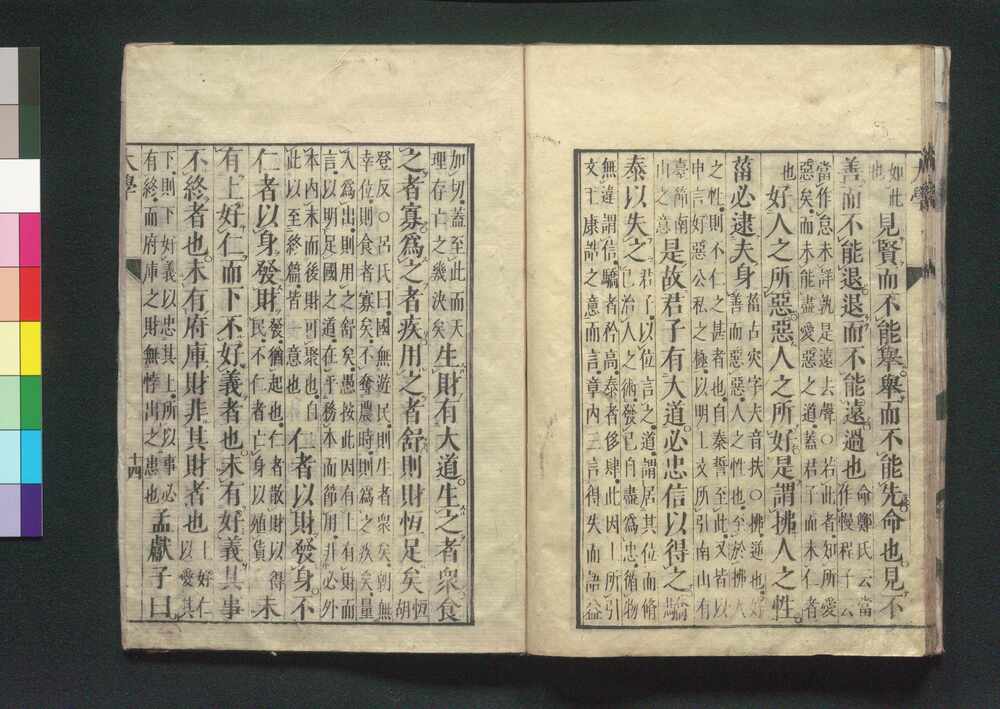 如此
也
見賢而不能舉舉而不能先命也見不
善而不能退退而不能遠過也
命鄭氏云當
作慢程子云
當作怠未詳孰是遠去聲○若此者知所愛
惡矣而未能盡愛惡之道蓋君子而未仁者
也
好人之所惡惡人之所好是謂拂人之性
菑必逮夫身
菑古災字夫音扶○拂逆也好
善而惡惡人之性也至於拂人
之性則不仁之甚者也自秦誓至此又皆以
申言好惡公私之極以明上文所引南山有
臺節南
山之意
是故君子有大道必忠信以得之驕
泰以失之
君子以位言之道謂居其位而脩
己治人之術發己自盡爲忠循物
無違謂信驕者矜高泰者侈肆此因上所引
文王康誥之意而言章內三言得失而語益
加切蓋至此而天
理存亡之幾決矣
生財有大道生之者衆食
之者寡爲之者疾用之者舒則財恆足矣
恆
胡
登反○呂氏曰國無遊民則生者衆矣朝無
幸位則食者寡矣不奪農時則爲之疾矣量
入爲出則用之舒矣愚按此因有土有財而
言以明足國之道在乎務本而節用非必外
本內末而後財可聚也自
此以至終篇皆一意也
仁者以財發身不
仁者以身發財
發猶起也仁者散財以得
民不仁者亡身以殖貨
未
有上好仁而下不好義者也未有好義其事
不終者也未有府庫財非其財者也
上好仁
以愛其
下則下好義以忠其上所以事必
有終而府庫之財無悖出之患也
孟獻子曰
大學
十四